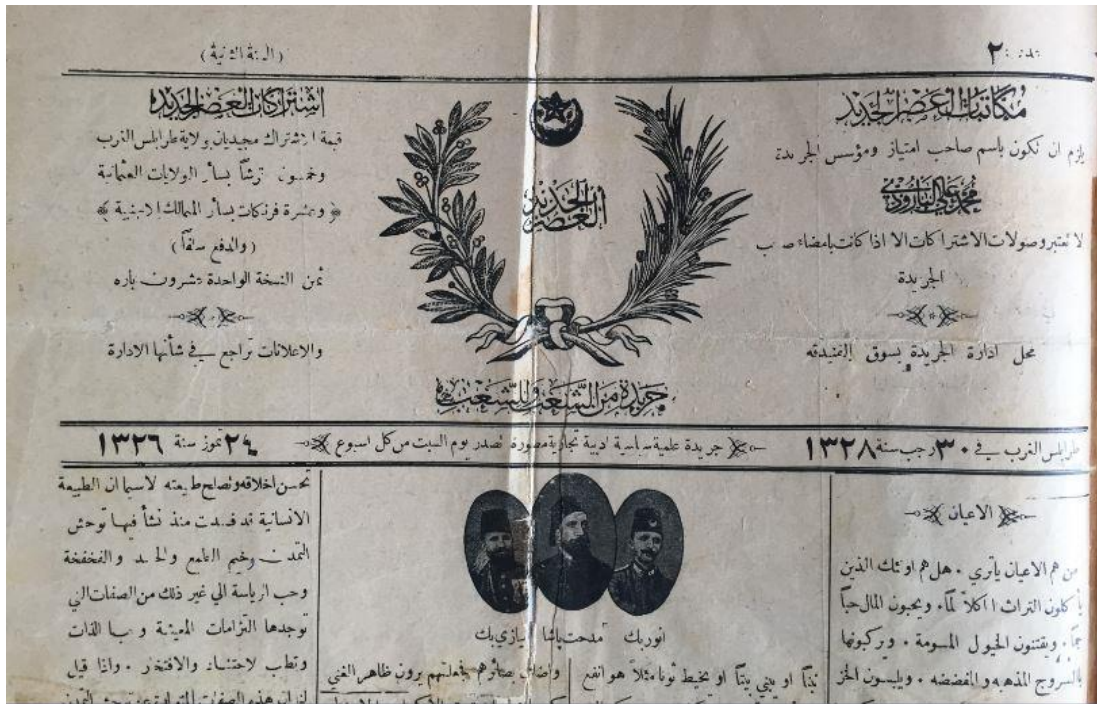 عدد ٢
(السنة الثانية)
مكاتبات العصر الجديد
يلزم ان تكون باسم صاحب امتياز ومؤسس الجريدة
محمد علي البارودي
لا تعتبر وصولات الاشتراكات الا اذا كانت بامضاء صاحب
الجريدة
محل ادارة الجريدة بسوق
العصر الجديد
جريدة من الشعب وللشعب
اشتراكات العصر الجديد
قيمة الاشتراك مجيديان بولاية طرابلس الغرب
وخمسون قرشاً بسائر الولايات العثمانية
﴿ وعشرة فرنكات بسائر الممالك الاجنبية ﴾
(والدفع سلفاً)
ثمن النسخة الواحدة عشرون باره
والاعلانات تراجع في شأنها الادارة
طرابلس الغرب في ٣٠ رجب سنة ١٣٢٨
جريدة علمية سياسية ادبية تجارية مصورة تصدر يوم السبت من كل اسبوع
٢٤ تموز سنة ١٣٢٦
الاعيان
من هم الاعيان ياتري ٠ هل هم اولئك الذين
يأكلون التراث اكلاً لماً ٠ ويحبون المال حباً
جماً ٠ ويقتنون الخيول المسومة ٠ ويركبونها
بالسروج المذهبه والمفضضه ٠ ويلبسون الخز
انور بك مدحت پاشا نيازي بك
او يبني بيتاً او يخيط ثوبا مثلاً هو انفع
يرون ظاهر الغني
تحسن اخلاقه وتصلح طبيعته لاسيما ان الطبيعة
الانسانية قد فسدت منذ نشأ فيها توحش
التمدن وخيم الطمع والحسد والفخفخة
وحب الرياسة الي غير ذلك من الصفات التي
توجدها التزامات المعيشة وحب الذات
وتطلب الاعتناء والافتخار ٠ واذا قيل